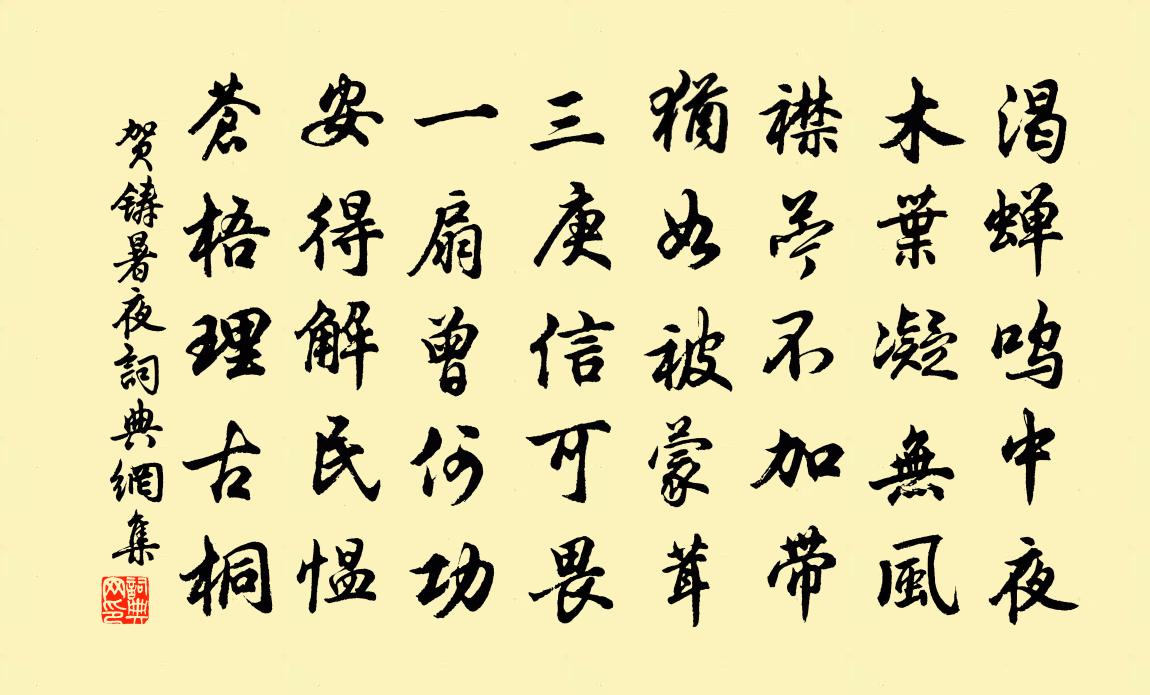 渴蝉鸣中夜
木葉凝無風
襟不加带
猶如被蒙茸
三庚信可畏
一扇曾何功
安得解民愠
蒼梧理古桐
贺铸暑夜詞典網集
詞典
网印